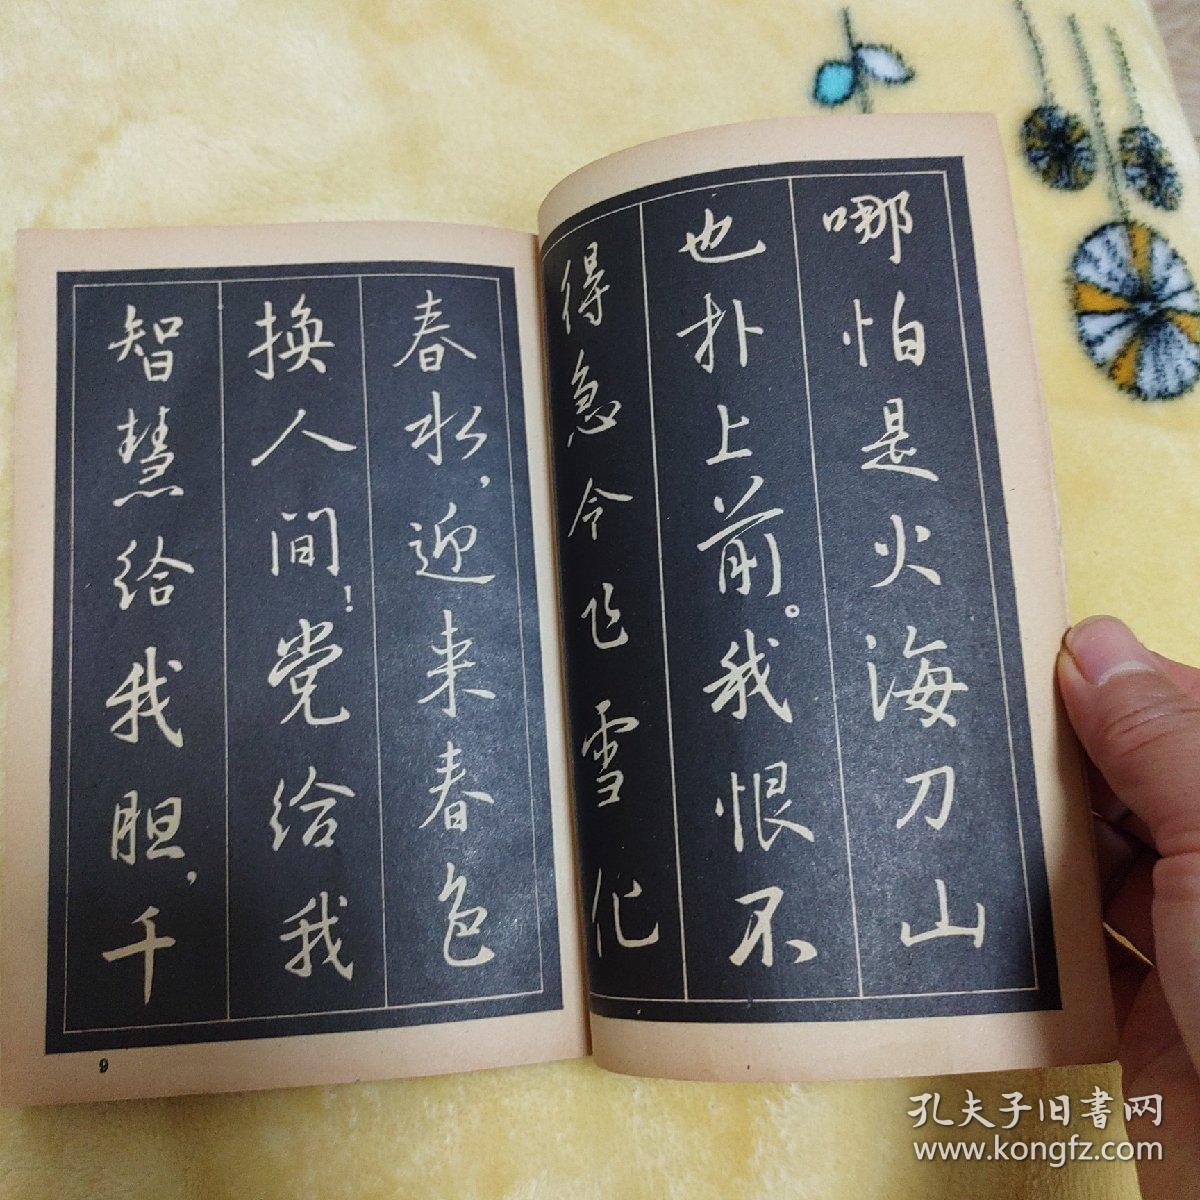 哪怕是火海刀山
也扑上前。我恨不
得急令飞雪化
春水，迎来春色
换人间！党给我
智慧给我胆，千
9
孔夫子旧书网
www.kongfz.com